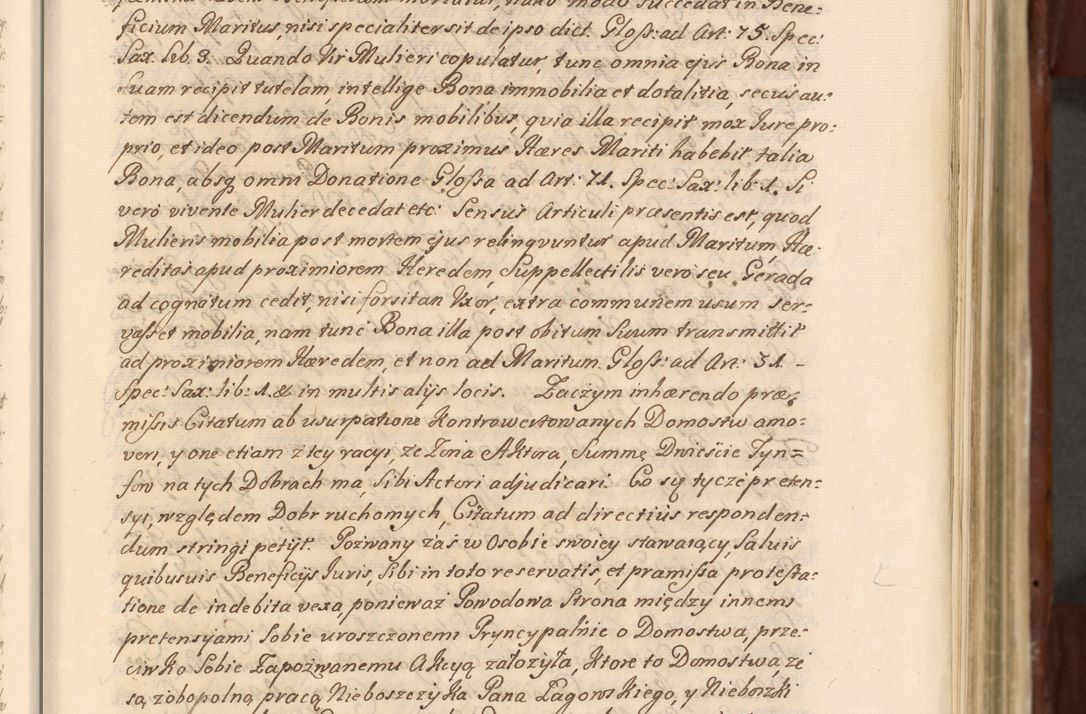 ficium Maritus, nisi specialiter sit de ipso dict. Gloss: ad Art: 75. Spec:
Sax: lib 3. Quando Vir Mulieri copulatur, tunc omnia ejus Bona in
suam recipit tutelam, intellige Bona immobilia et dotalitia, secus au-
tem est dicendum de Bonis mobilibus, quia illa recipit mox Jure pro:
prio, et ideo post Maritum proximus Hæres Mariti habebit talia
Bona, absq omni Donatione Glossa ad Art: 71. Spec: Sax: lib: 1. Si
vero vivente Mulier decedat etc: Sensus Articuli præsentis est, quod
Mulieris mobilia post mortem ejus relinqvuntur apud Maritum, Hæ-
reditas apud proximiorem Heredem, Suppellectilis vero seu Gerada
ad cognatum cedit, nisi forsitan Uxor, extra communem usum ser-
vasset mobilia, nam tunc Bona illa post obitum suum transmittit
ad proximiorem Hæredem, et non ad Maritum. Gloss: ad Art: 31. -
Spec: Sax: lib: 1. & in multis alijs locis. Zaczym inhærendo præ-
missis Citatum ab usurpatione Kontrowertowanych Domostw amo-
veri, y one etiam z tey racyi, ze Zona Aktora, Summę Dwieście Tyn=
fow na tych Dobrach ma, Sibi Actori adjudicari. Co się tycze preten:
syi, względem Dobr ruchomych, Citatum ad directius responden-
dum stringi petijt. Pozwany zaś w Osobie swoiey stawaiący, Salvis
quibusuis Beneficijs Iuris, Sibi in toto reservatis, et præmissa protesta-
tione de indebita vexa, ponieważ Powodowa Strona między innemi
pretensyjami Sobie uroszczonemi Pryncypalnie o Domostwa, prze-
ciwko Sobie Zapozwanemu Akcyą założyła, Ktore to Domostwa, ze
są zobopolną pracą Nieboszczyka Pana Łagowskiego, y Nieboszki